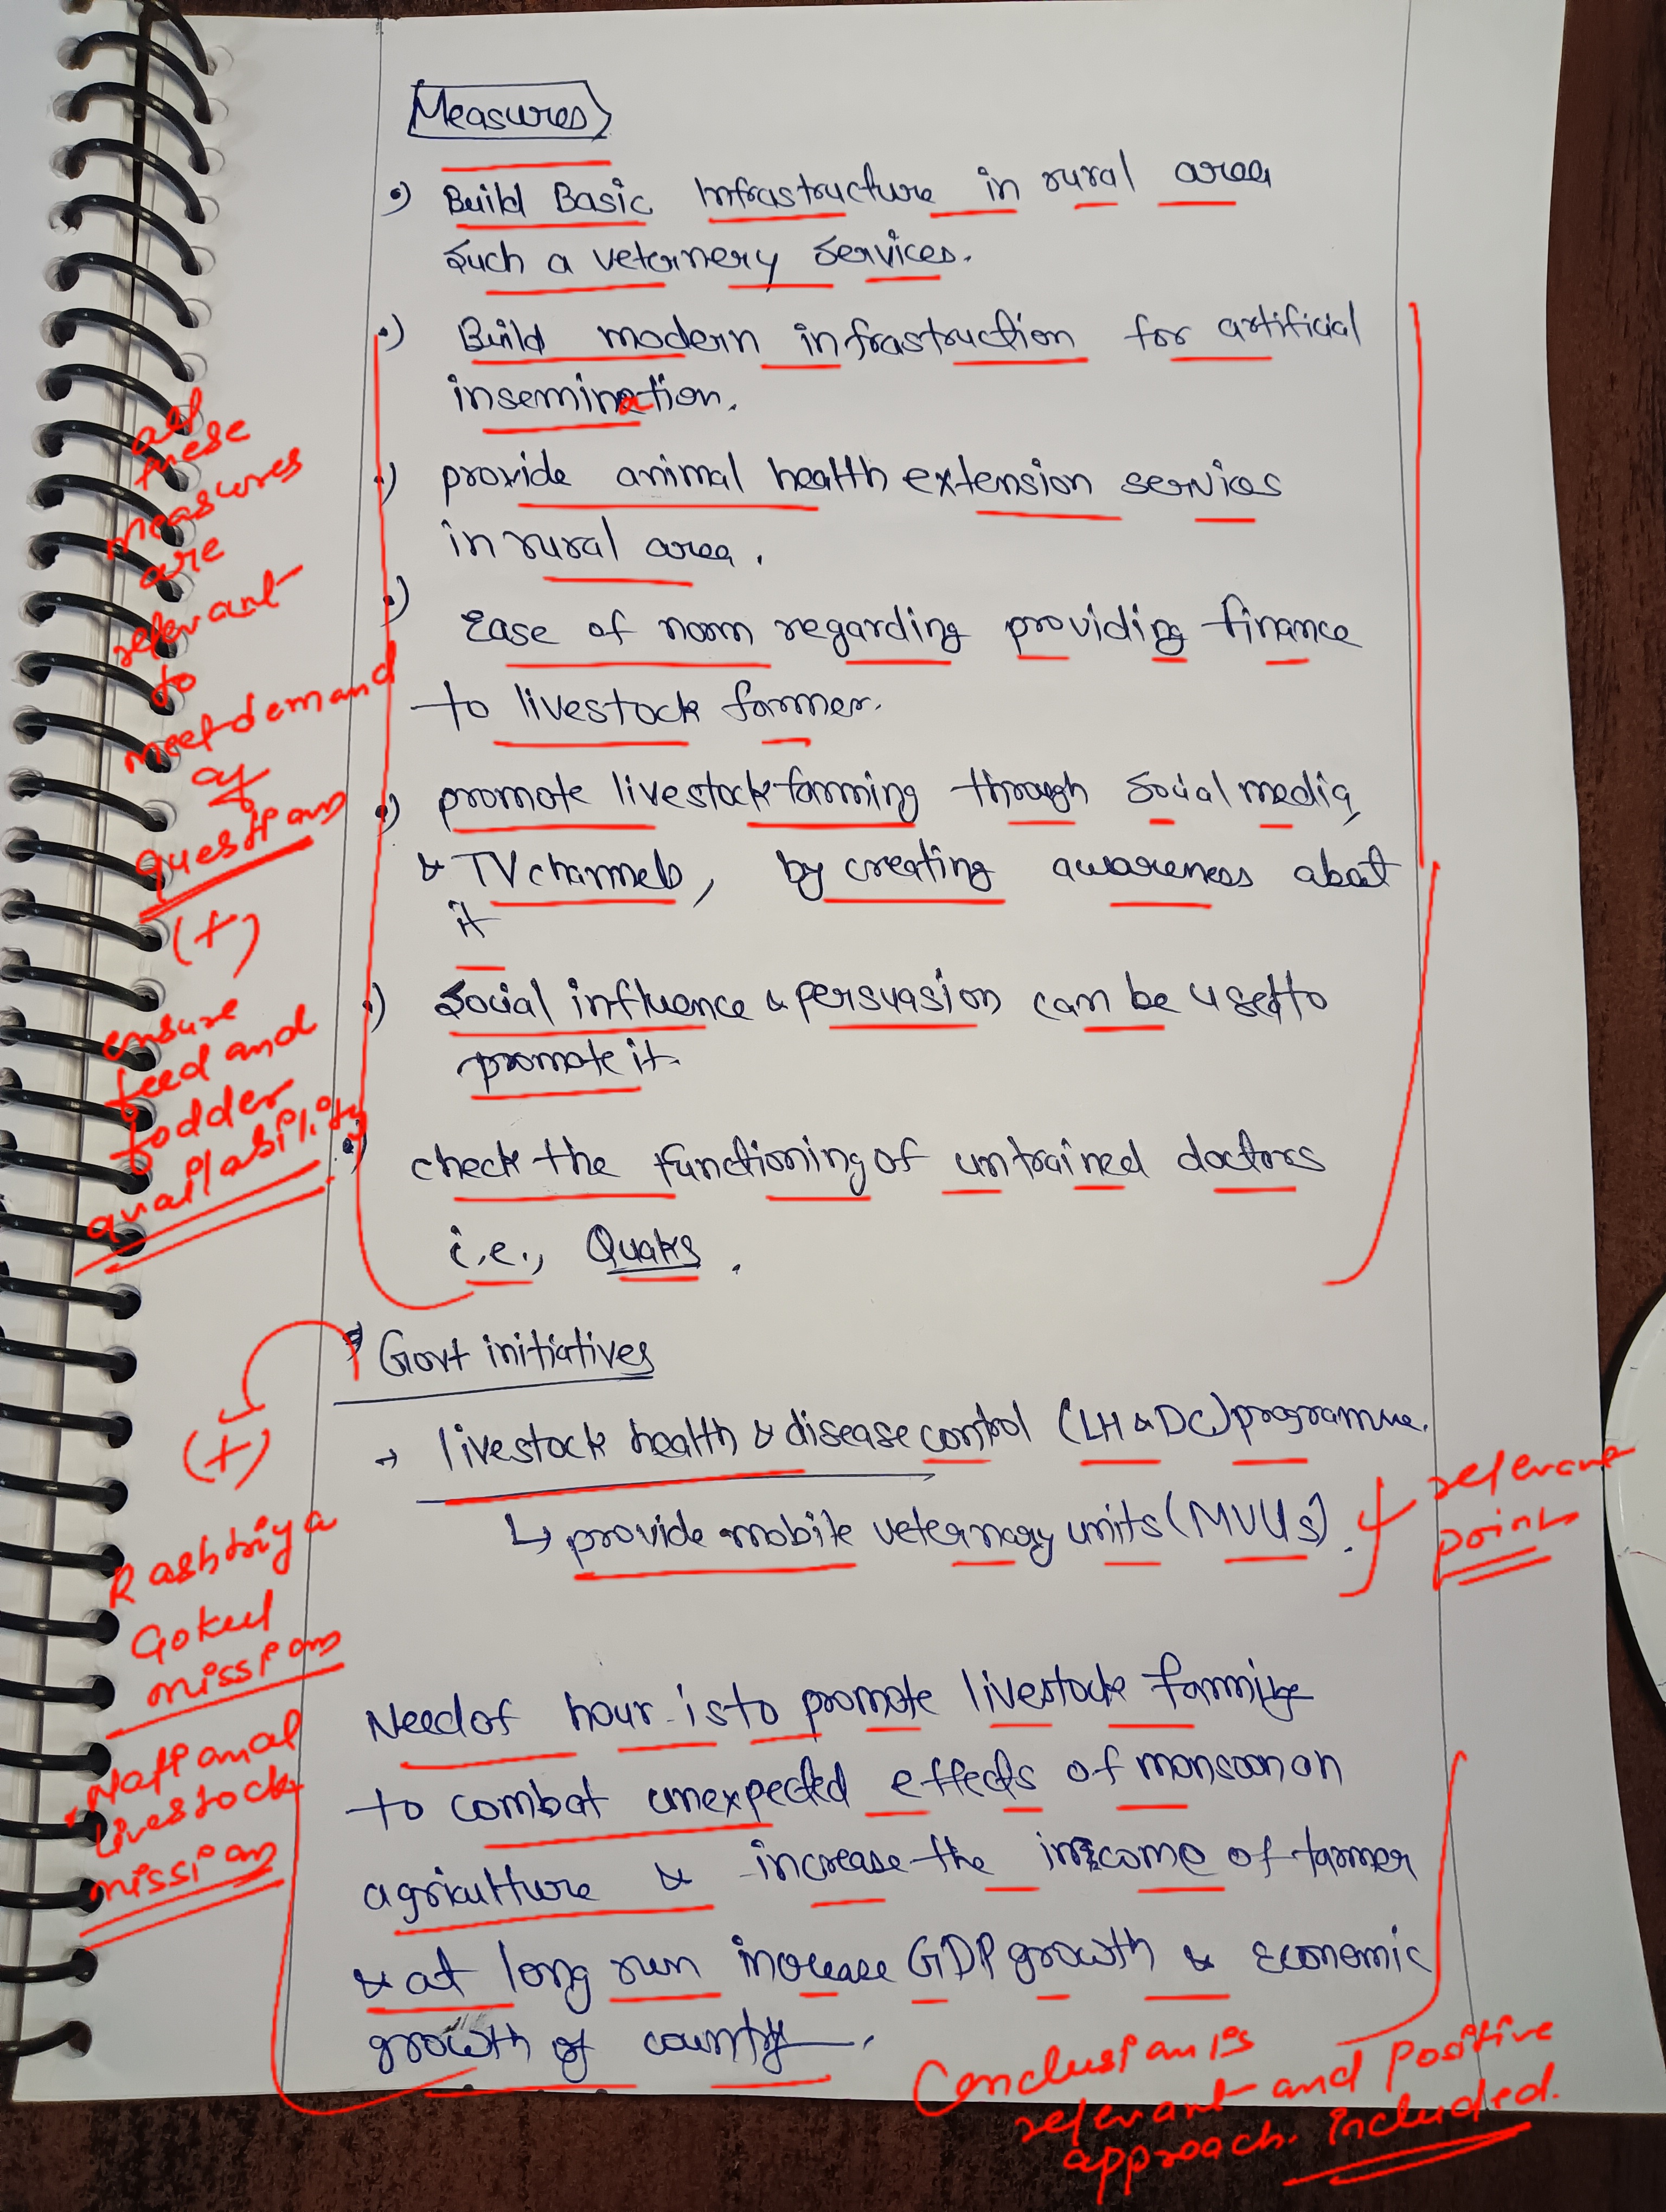 Measures
Build Basic Infrastructure in rural area
such a veternery services.
Build modern infrastruction for artificial
insemination.
provide animal health extension servics
in rural area.
Ease of norm regarding providing finance
to livestock farmer.
promote livestock farming through social media,
& TV channels, by creating awareness about
it
social influence & persuasion can be used to
promote it.
check the functioning of untrained doctors
i.e., Quaks.
all
these
measures
are
relevant
to
meet demand
of
question
(+)
ensure
feed and
fodder
availability
Govt initiatives
→ livestock health & disease control (LH & DC) programme.
↳ provide mobile veternary units (MVUs).
relevant
point
(+)
Rashtriya
Gokul
mission
National
livestock
mission
Need of hour is to promote livestock farming
to combat unexpected effects of monsoon on
agriculture & increase the income of farmer
& at long run increase GDP growth & Economic
growth of county.
Conclusion is
relevant and Positive
approach included.